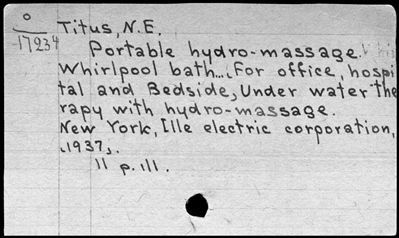 o
17234
Titus, N.E.
Portable hydro-massage.
Whirlpool bath... For office, hospi
tal and Bedside, Under water the
rapy with hydro-massage.
New York, Ille electric corporation,
1937,.
11 p. ill.